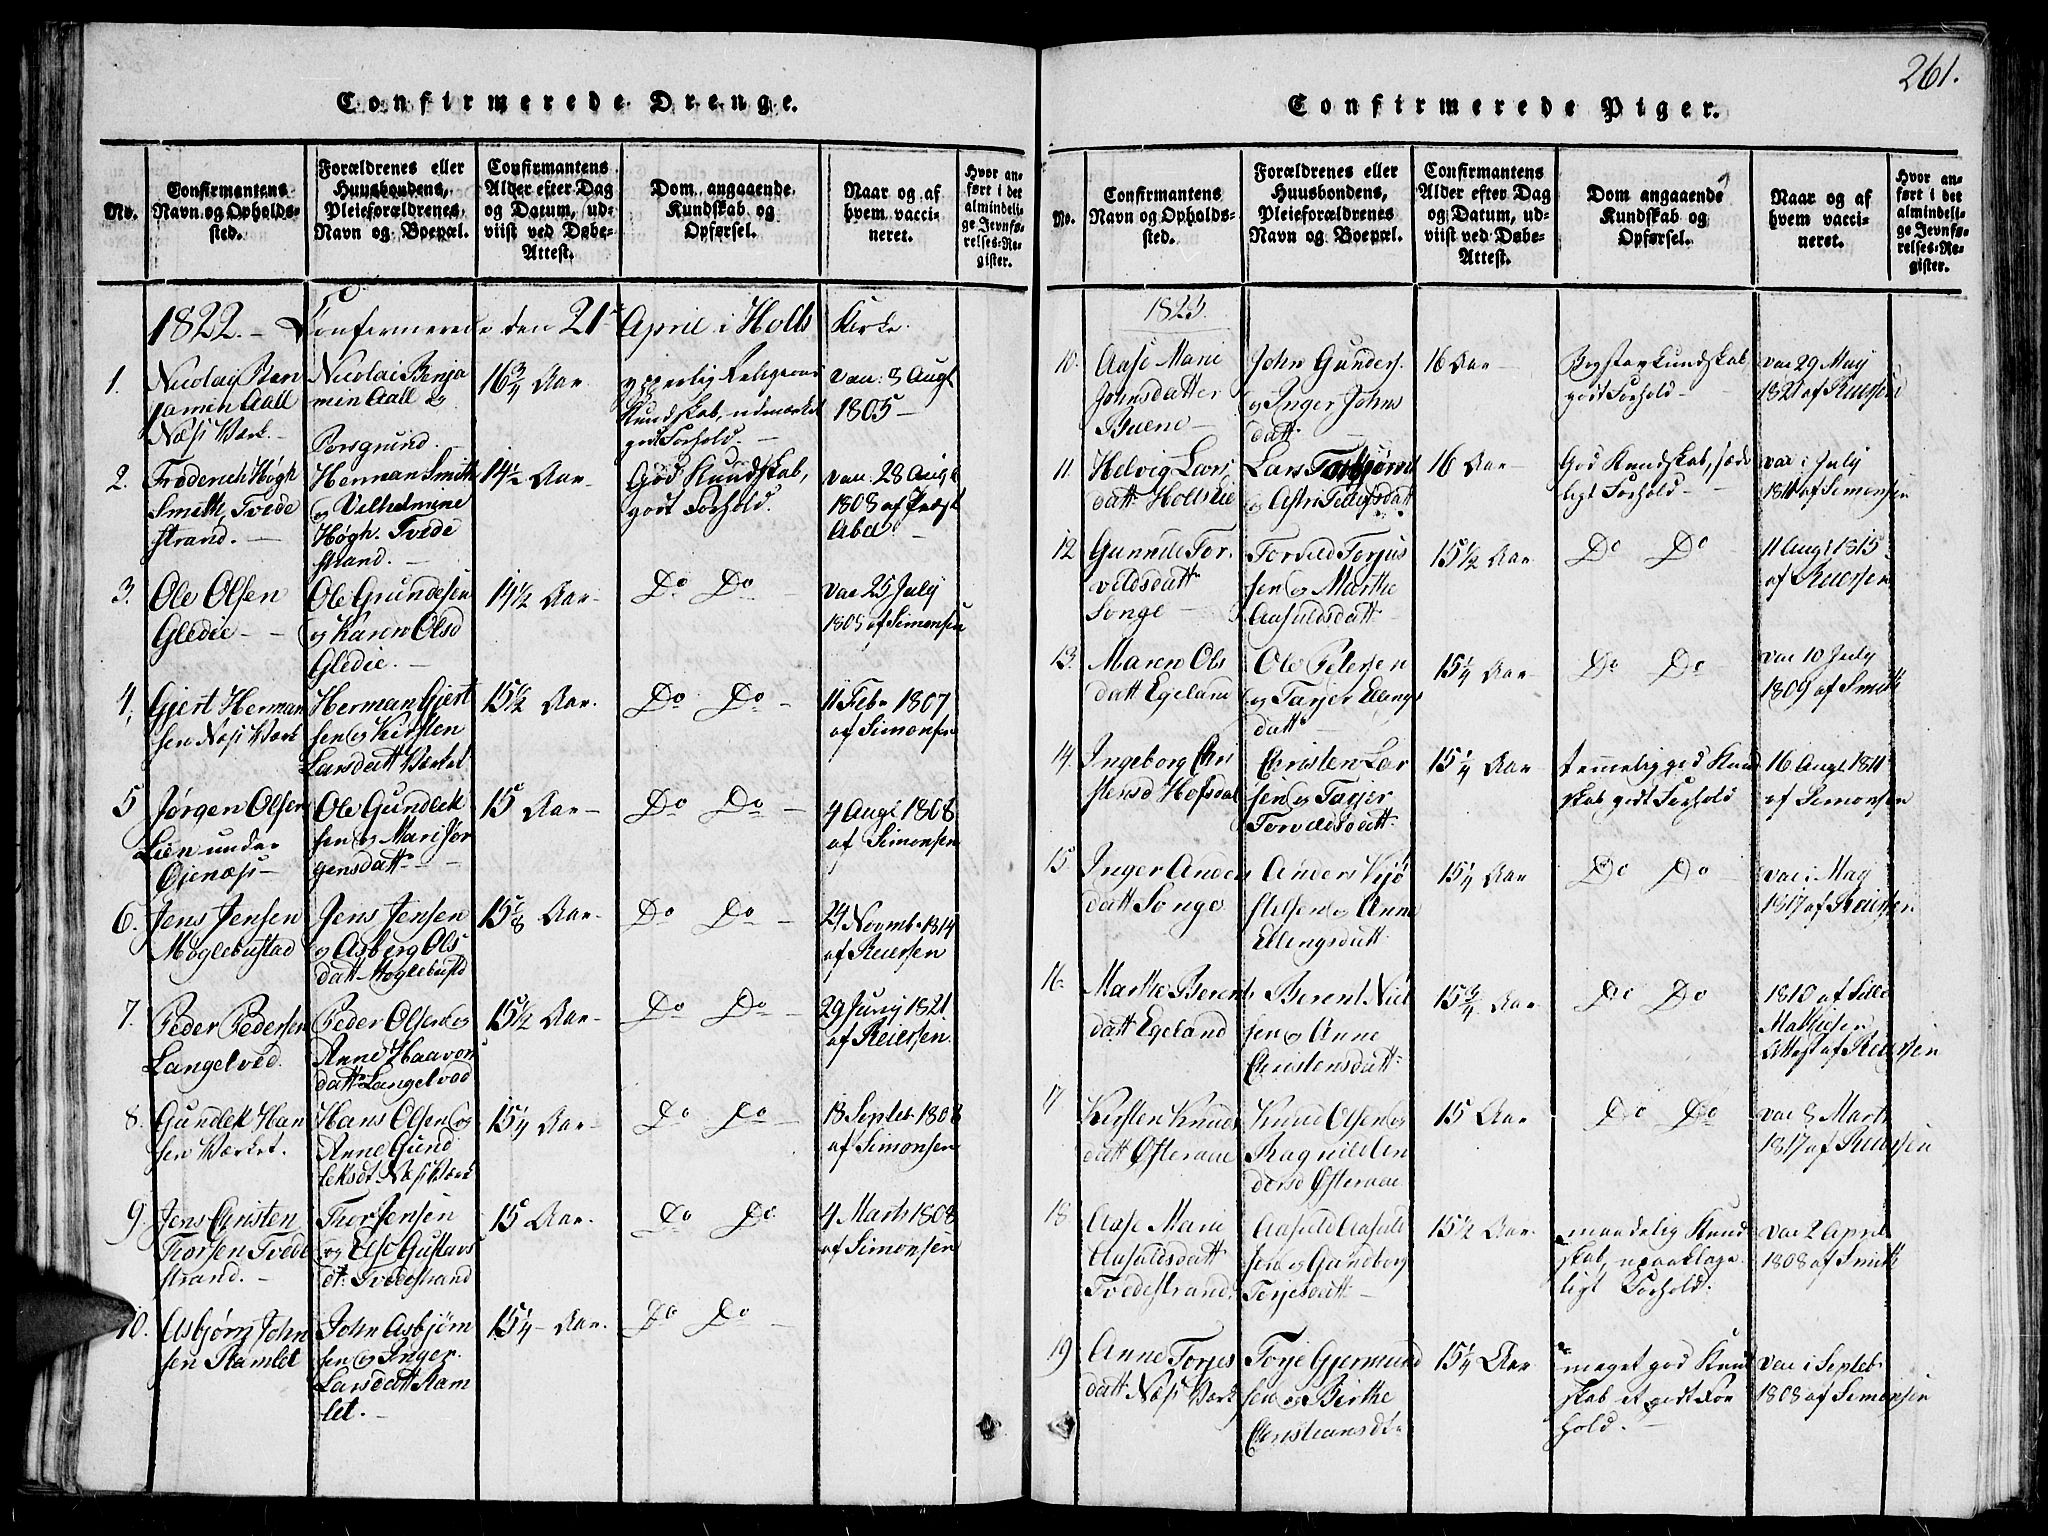 261.
Confirmerede Drenge.
No.
Confirmantens
Navn og Opholds-
sted.
Forældrenes eller
Huusbondens,
Pleieforældrenes,
Navn og Boepæl.
Confirmantens
Alder efter Dag
og Datum, ud-
viist ved Døbe-
Attest.
Dom angaaende
Kundskab og
Opførsel.
Naar og af
hvem vacci-
neret.
Hvor an-
ført i det
almindeli-
ge Jevnfø-
relses-Re-
gister.
1822. - Confirmerede den 21 April i Holts Kirke.
1.
Nicolay Ben
jamin Aall
Næsj Værk.
Nicolai Benja
men Aall og
Porsgrund.
16 3/4 Aar.
ypperlig Religions
Kundskab, udmærket
godt Forhold. -
vac: 3 Augt
1805 -
2.
Frederich Høgh
Smith, Tvede
strand. -
Herman Smith
og Vilhelmine
Høgh. Tvede
strand. -
14 1/2 Aar -
God Kundskab,
godt Forhold.
vac: 28 Augt
1808 af Præst
Abel. -
3.
Ole Olsen
Gledie -
Ole Gundesen
og Karen Olsd
Gledie. -
14 1/2 Aar -
Do Do -
vac 25 July
1808 af Simonsen
4.
Gjert Herman
sen Næsj Værk
Herman Gjert
sen og Kirsten
Larsdatt Værket
15 1/2 Aar.
Do Do -
11 Febr 1807
af Simonsen
5
Jørgen Olsen
Lien under
Eienæs -
Ole Gundlek
sen og Mari Jør
gensdatt -
15 Aar -
Do Do -
4 Augt 1808
af Simonsen
6.
Jens Jensen
Møglebustad
Jens Jensen
og Asberg Ols
datt Møglebustd
15 5/8 Aar -
Do Do -
24 Novmb. 1814
af Reiersen
7.
Peder Pedersen
Langelved.
Peder Olsen og
Anne Haavors
datt Langelved
15 1/2 Aar -
Do Do -
29 Juny 1821.
af Reiersen.
8.
Gundlek Han
sen Værket.
Hans Olsen og
Anne Gund
leksdt Næsj Værk
15 1/4 Aar -
Do Do
18 Septeb 1808
af Simonsen
9.
Jens Christen
Thorsen Tvede
strand. -
Thor Jensen
og Else Gustavs
dt. Tvedestrand
15 Aar -
Do Do
4 Marts 1808
af Simonsen
10.
Asbjørn John
sen Ramlet
John Asbjørn
sen og Inger
Larsdatt Ram
let. -
15 1/4 - Aar.
Do Do -
Confirmerede Piger.
No.
Confirmantens
Navn og Opholds-
sted.
Forældrenes eller
Huusbondens,
Pleieforældrenes
Navn og Boepæl.
Confirmantens
Alder efter Dag
og Datum, ud-
viist ved Døbe-
Attest.
Dom angaaende
Kundskab og
Opførsel.
Naar og af
hvem vacci-
neret.
Hvor an-
ført i det
almindeli-
ge Jevnfø-
relses-Re-
gister.
1823.
10.
Aase Marie
Johnsdatter
Buene -
John Gunders.
og Inger Johns
datt -
16 Aar -
Kundskab
godt Forhold -
vac 29 May
1821 af Reiersen
11
Helvig Lars
datt Holtskie
Lars Torbjørns
og Astri Tellefsdatt
16 Aar -
God Kundskab, sæde
ligt Forhold -
vac i July
1811 af Simonsen
12
Gunnild Tor
velds datt
Songe -
Torveld Torjus
sen og Marthe
Aasuldsdatt -
15 1/2 Aar
Do Do
11 Augt 1815
af Reiersen
13.
Maren Ols
datt Egeland
Ole Petersen
og Tarjer Ellings
datt -
15 1/4 Aar -
Do Do -
vac 10 July
1809 af Smith
14.
Ingeborg Chri
stensd Hofsdal
Christen Lar
sen og Tarjer
Torveldsdatt.
15 1/4 Aar
temmelig god Kund
skab godt Forhold
16 Augt 1811
af Simonsen
15.
Inger Anders
datt Songe
Anders Kjø
stelsen og Anne
Ellingsdatt.
15 1/4 Aar
Do Do -
vac i May
1817 af Reiersen
16.
Marthe Berent
datt Egeland
Berent Niel
sen og Anne
Christensdatt -
15 3/4 Aar
Do Do
1810 af Lille
Mathisen
Attest af Reiersen
17
Kirsten Knuds
datt Østeraae
Knud Olsen og
Ragnild en
dersd Østeraae
15 Aar
Do Do
vac 8 Marth
1817 af Reiersen
18
Aase Marie
Aasuldsdatt
Tvedestrand.
Aasuld Aasuld
sen og Gundborg
Torjesdatt -
15 1/2 Aar.
maadelig Kund
skab, upaaklage
ligt Forhold.
vac 2 April
1808 af Smith
19
Anne Torjes
datt Næsj Værk
Torje Gjermund
sen og Birthe
Christiansdt.
15 1/4 Aar
meget god Kund
skab et godt For
hold. -
vac i Septeb
1808 af Simonsen